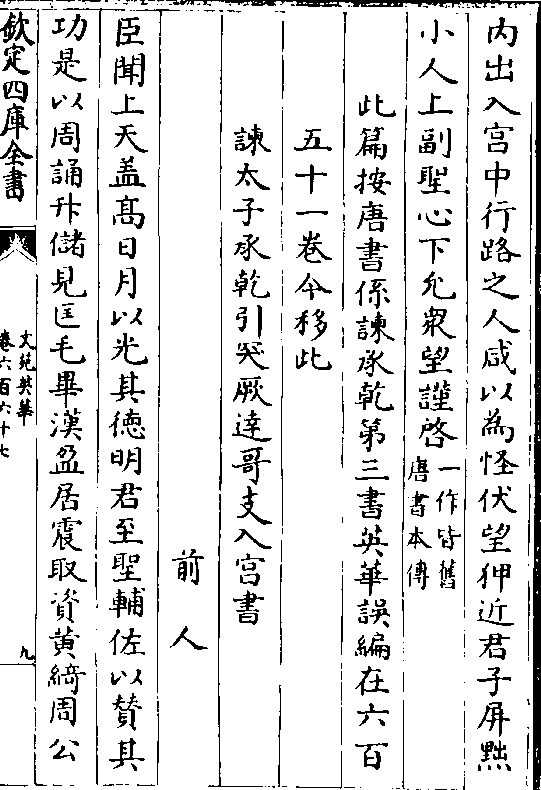 内出入宫中行路之人咸以為怪伏望狎近君子屏黜
小人上副聖心下允衆望謹啓一作皆舊唐書本傳
此篇按唐書係諫承乾第三書英華誤編在六百
五十一卷今移此
諫太子承乾引突厥達哥支入宫書
前人
臣聞上天盖髙日月以光其徳明君至聖輔佐以賛其
功是以周誦升儲見匡毛畢漢盈居震取資黄綺周公
欽定四庫全書
文苑英華
卷六百六十七
九